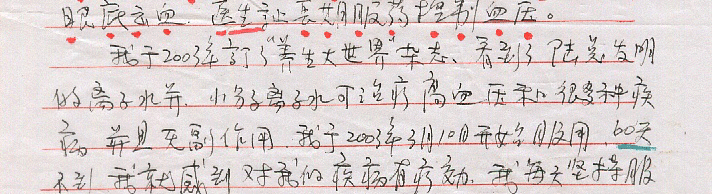 眼底出血。医生让长期服药控制血压。
我于2003年订了“养生大世界”杂志、看到了陆总发明
的离子水井。小分子离子水可治疗高血压和很多种疾
病 并且无副作用。我于2003年3月10日开始服用、60天
不到 我就感到对我的疾病有疗効。我每天坚持服